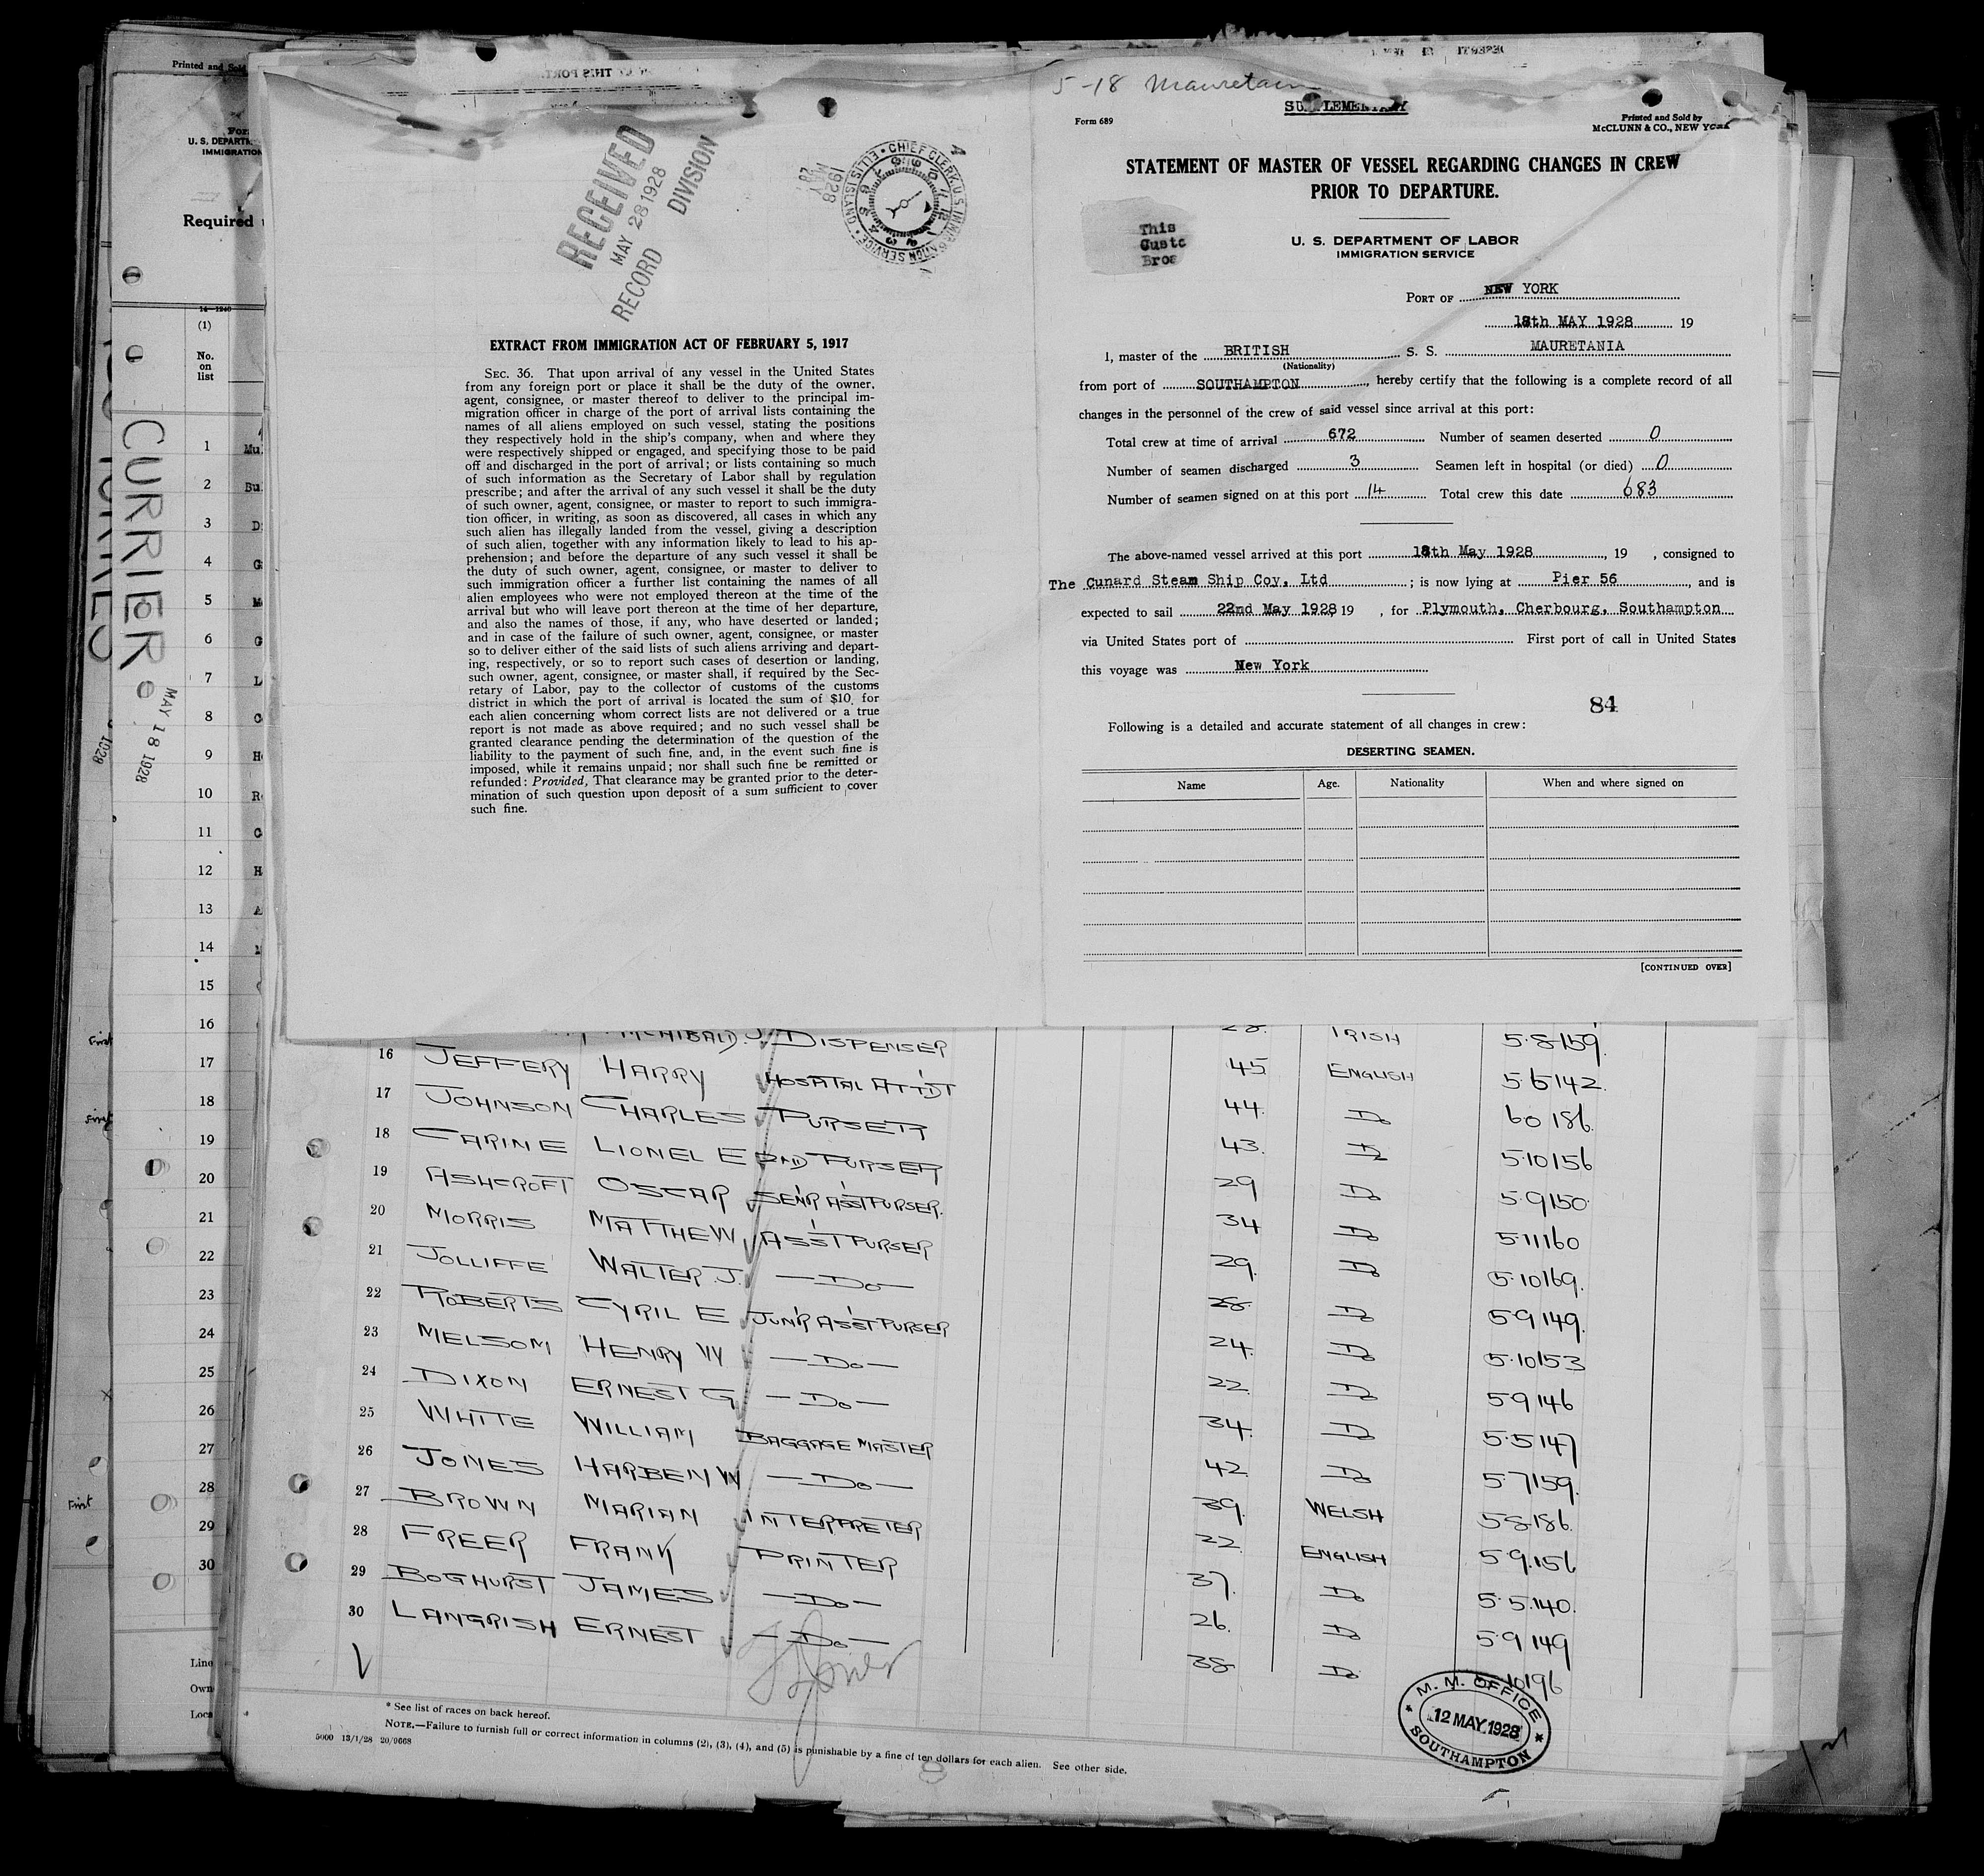 Printed and Sold
U. S. DEPARTM
IMMIGRATION
Required
14—1240
(1)
No.
on
list
CURRIER
MAY 18 1928
1928
1 Mu
2 Bu
3 D
4 G
5
6 G
7 L
8
9 H
10 R
11
12 H
13 A
14
15
16
17
18
19
20
21
22
23
24
25
26
27
28
29
30
First
First
First
Line
Own
Loca
RECEIVED
MAY 28 1928
RECORD DIVISION
MAY
28
1928
CHIEF CLERK, U.S. IMMIGRATION SERVICE • ELLIS ISLAND •
EXTRACT FROM IMMIGRATION ACT OF FEBRUARY 5, 1917
SEC. 36. That upon arrival of any vessel in the United States
from any foreign port or place it shall be the duty of the owner,
agent, consignee, or master thereof to deliver to the principal im-
migration officer in charge of the port of arrival lists containing the
names of all aliens employed on such vessel, stating the positions
they respectively hold in the ship's company, when and where they
were respectively shipped or engaged, and specifying those to be paid
off and discharged in the port of arrival; or lists containing so much
of such information as the Secretary of Labor shall by regulation
prescribe; and after the arrival of any such vessel it shall be the duty
of such owner, agent, consignee, or master to report to such immigra-
tion officer, in writing, as soon as discovered, all cases in which any
such alien has illegally landed from the vessel, giving a description
of such alien, together with any information likely to lead to his ap-
prehension; and before the departure of any such vessel it shall be
the duty of such owner, agent, consignee, or master to deliver to
such immigration officer a further list containing the names of all
alien employees who were not employed thereon at the time of the
arrival but who will leave port thereon at the time of her departure,
and also the names of those, if any, who have deserted or landed;
and in case of the failure of such owner, agent, consignee, or master
so to deliver either of the said lists of such aliens arriving and depart-
ing, respectively, or so to report such cases of desertion or landing,
such owner, agent, consignee, or master shall, if required by the Sec-
retary of Labor, pay to the collector of customs of the customs
district in which the port of arrival is located the sum of $10 for
each alien concerning whom correct lists are not delivered or a true
report is not made as above required; and no such vessel shall be
granted clearance pending the determination of the question of the
liability to the payment of such fine, and, in the event such fine is
imposed, while it remains unpaid; nor shall such fine be remitted or
refunded: Provided, That clearance may be granted prior to the deter-
mination of such question upon deposit of a sum sufficient to cover
such fine.
5-18 Mauretan
SUPPLEMENTARY
Form 689
Printed and Sold by
McCLUNN & CO., NEW YORK
STATEMENT OF MASTER OF VESSEL REGARDING CHANGES IN CREW
PRIOR TO DEPARTURE.
This
Custo
Broa
U. S. DEPARTMENT OF LABOR
IMMIGRATION SERVICE
PORT OF NEW YORK
18th MAY 1928 19
I, master of the BRITISH S. S. MAURETANIA
(Nationality)
from port of SOUTHAMPTON, hereby certify that the following is a complete record of all
changes in the personnel of the crew of said vessel since arrival at this port:
Total crew at time of arrival 672 Number of seamen deserted 0
Number of seamen discharged 3 Seamen left in hospital (or died) 0
Number of seamen signed on at this port 14 Total crew this date 683
The above-named vessel arrived at this port 18th May 1928, 19 , consigned to
The Cunard Steam Ship Coy, Ltd ; is now lying at Pier 56, and is
expected to sail 22nd May 1928 19 , for Plymouth, Cherbourg, Southampton
via United States port of First port of call in United States
this voyage was New York
84
Following is a detailed and accurate statement of all changes in crew:
DESERTING SEAMEN.
Name Age. Nationality When and where signed on
[CONTINUED OVER]
ARCHIBALD. J. DISPENSER 28. IRISH 5.8 159.
16 JEFFERY HARRY HOSPITAL ATT'DT 45 ENGLISH 5.6 142.
17 JOHNSON CHARLES PURSER 44. Do 6 0 186.
18 CARINE LIONEL E 2ND PURSER 43. Do 5.10 156
19 ASHCROFT OSCAR SEN'R ASS'T PURSER. 29 Do 5.9 150.
20 MORRIS MATTHEW ASS'T PURSER 34 Do 5.11 160
21 JOLLIFFE WALTER. J. —Do— 29. Do 5.10 169.
22 ROBERTS CYRIL E JUN'R ASS'T PURSER 28. Do 5.9 149.
23 MELSOM HENRY W —Do— 24. Do 5.10 153
24 DIXON ERNEST G —Do— 22. Do 5 9 146
25 WHITE WILLIAM BAGGAGE MASTER 34. Do 5.5 147
26 JONES HARBEN W —Do— 42 Do 5.7 159.
27 BROWN MARIAN INTERPRETER 39. WELSH 5.8 186.
28 FREER FRANK PRINTER 22. ENGLISH 5 9.156
29 BOGHURST JAMES —Do— 37. Do 5.5.140.
30 LANGRISH ERNEST —Do— 26. Do 5.9 149
38 Do 5 10 196
M. M. OFFICE
12 MAY 1928
SOUTHAMPTON
* See list of races on back hereof.
NOTE.—Failure to furnish full or correct information in columns (2), (3), (4), and (5) is punishable by a fine of ten dollars for each alien. See other side.
5000 13/1/28 20/9668